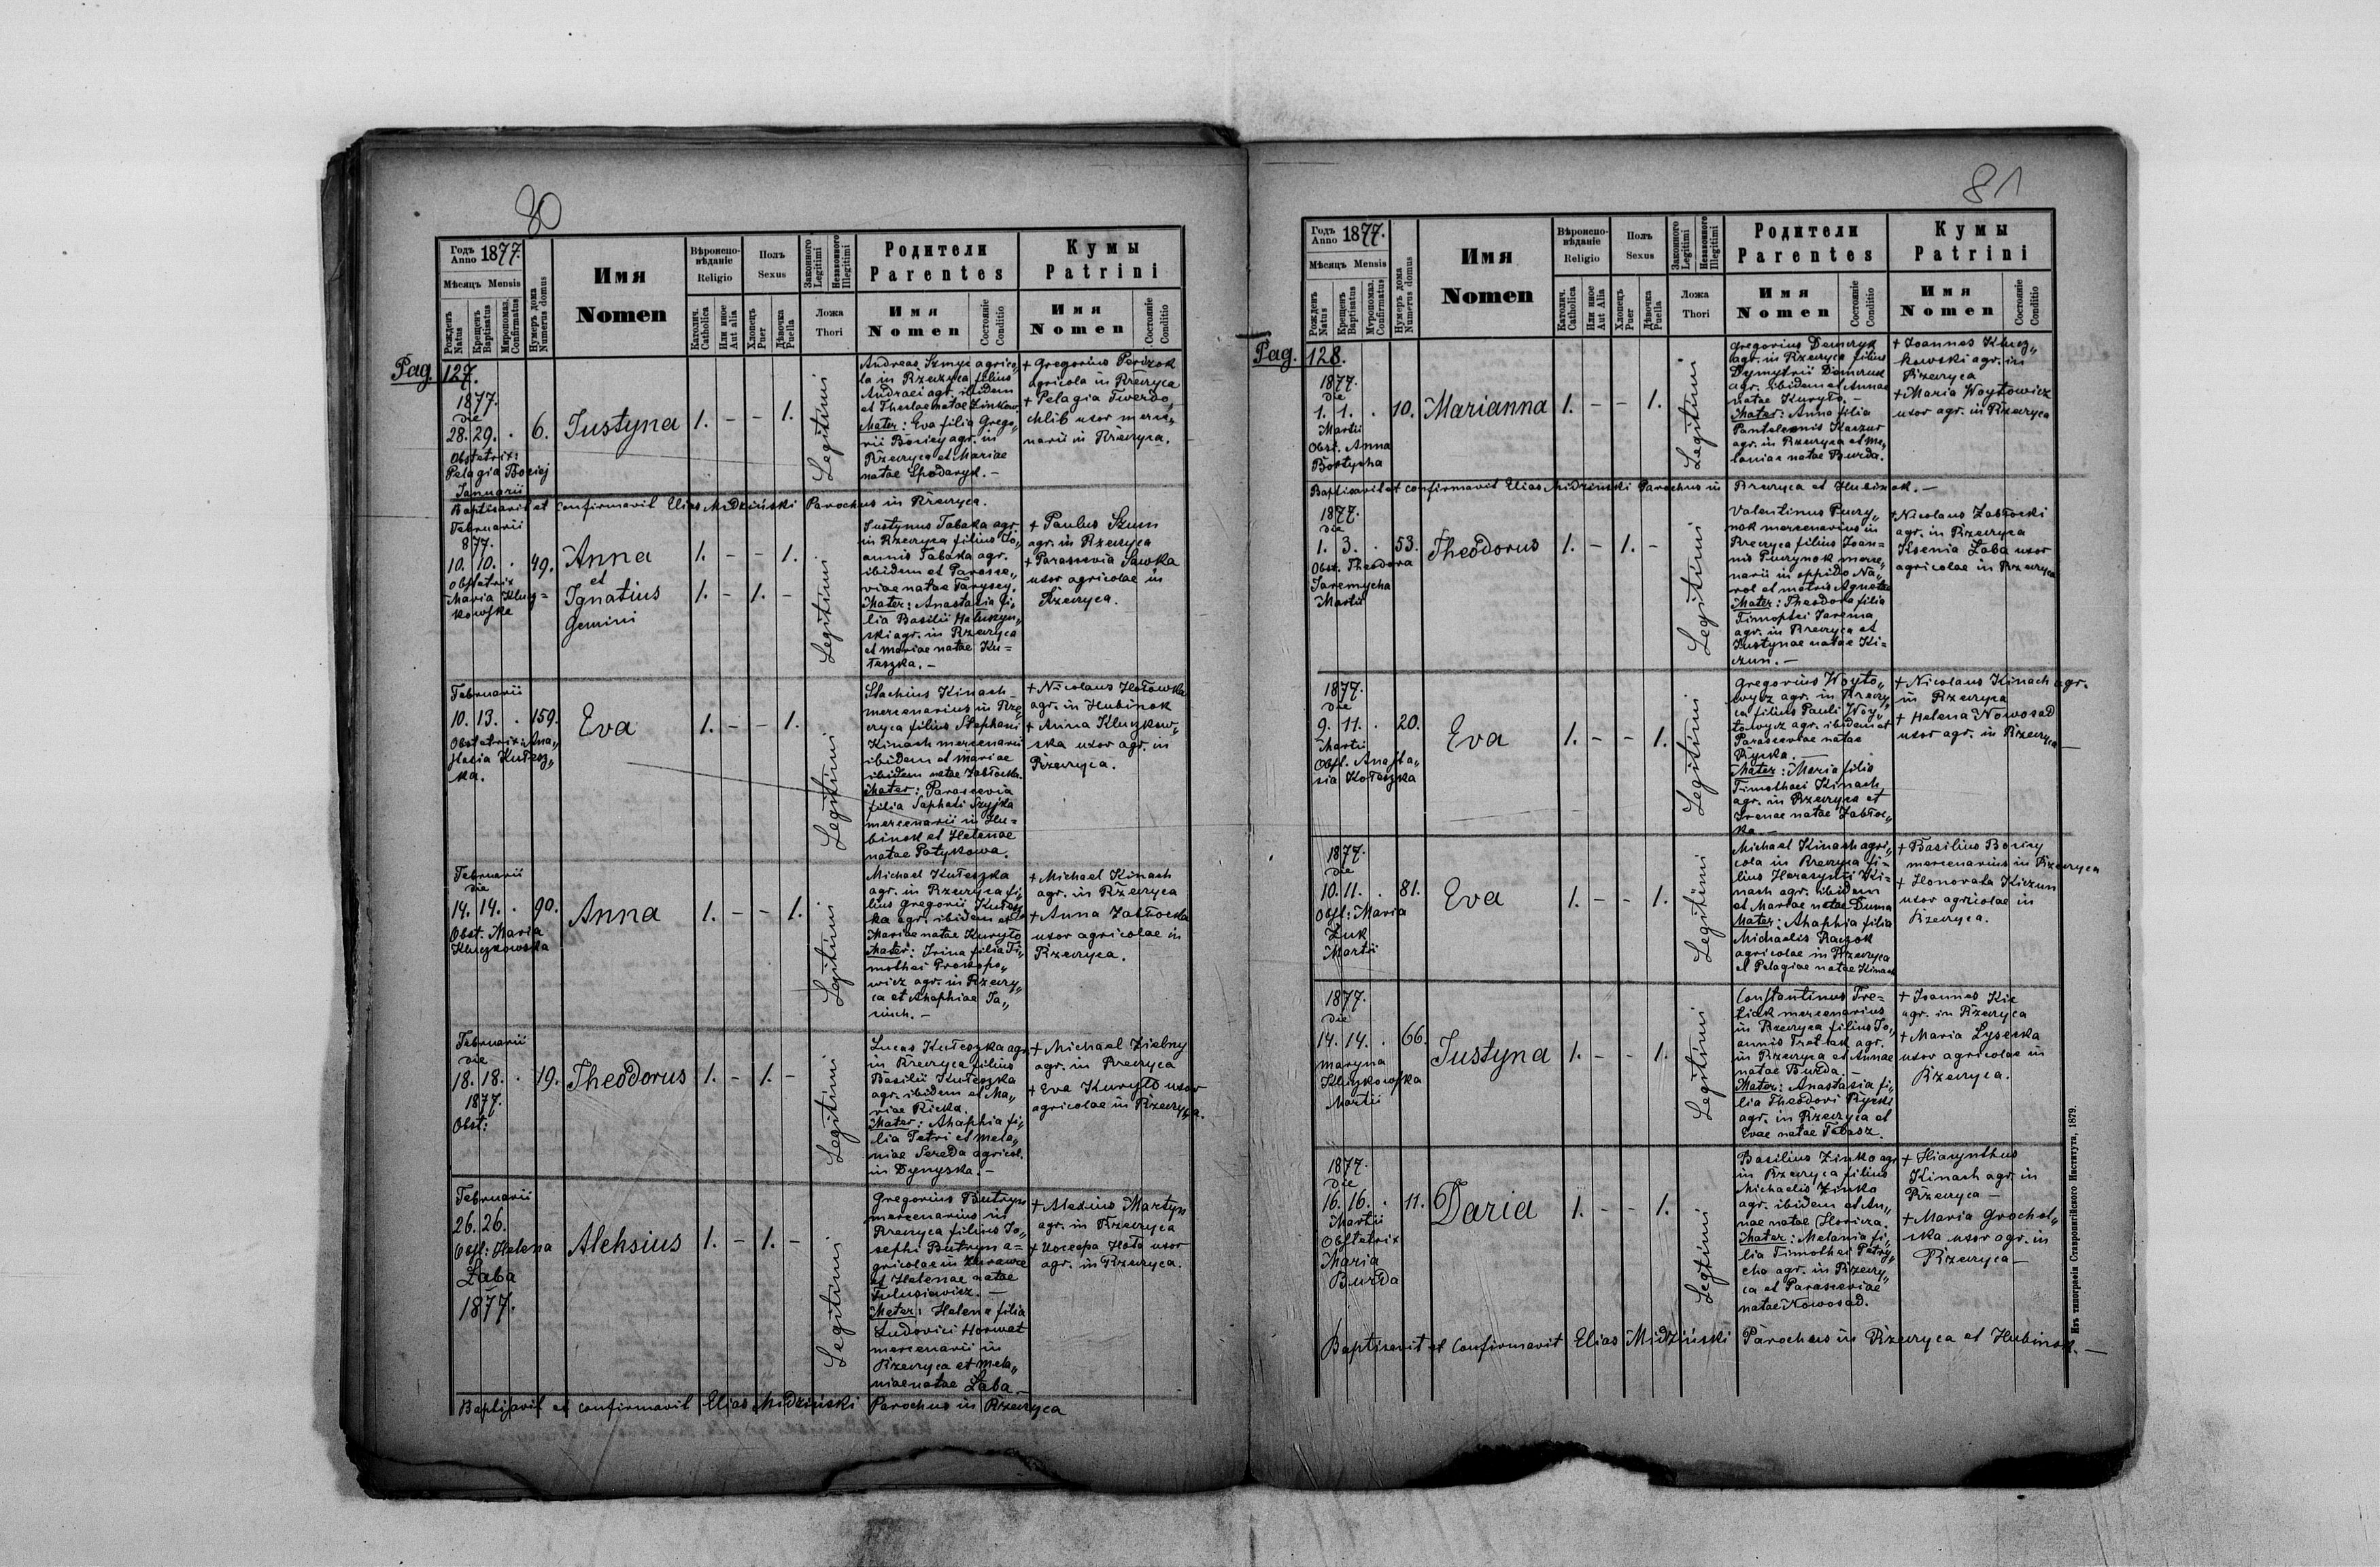 80
Годъ Anno 1877.
Мѣсяцъ Mensis
Рожденъ Natus
Крещенъ Baptisatus
Миропомаз. Confirmatus
Нумеръ дома Numerus domus
Имя
Nomen
Вѣроиспо-
вѣданіе
Religio
Католич. Catholica
Или иное Aut alia
Полъ
Sexus
Хлопецъ Puer
Дѣвочка Puella
Законного Legitimi
Незаконного Illegitimi
Ложа
Thori
Родители
Parentes
Имя
Nomen
Состояніе Conditio
Кумы
Patrini
Имя
Nomen
Состояніе Conditio
Pag. 127.
1877.
die
28. 29. . 6. Justyna 1. - - 1. Legitimi
Obstetrix:
Pelagia Boziej
Januarii
Andreas Szmyc agrico„
la in Rzeczyca filius
Andraei agr. ibidem
et Theclae natae Zinkow.
Mater: Eva filia Grego„
rii Boziey agr. in
Rzeczyca et Mariae
natae Spodaryk. -
+ Gregorius Perizok
agricola in Rzeczyca
+ Pelagia Twerdo„
chlib uxor merce„
narii in Rzeczyca.
Baptisavit et confirmavit Elias Midziński Parochus in Rzeczyca.
Februarii
877.
10. 10. . 49. Anna 1. - - 1.
et
Ignatius 1. - 1. -
Gemini
Legitimi
Obstetrix
Maria Klucz=
kowska
Justynus Tabaka agr.
in Rzeczyca filius Jo„
annis Tabaka agr.
ibidem et Parasce„
viae natae
Mater: Anastasia fi„
lia Basilii
ski agr. in Rzeczyca
et Mariae natae Ku=
łeszka. -
+ Paulus Szum
agr. in Rzeczyca
+ Parascevia Sawka
uxor agricolae in
Rzeczyca.
Februarii
10. 13. . 159. Eva 1. - - 1. Legitimi
Obstetrix: Ana„
stasia Kułesz„
ka.
Stachius Kinach
mercenarius in Rze„
czyca filius Stephani
Kinach mercenarii
ibidem et Mariae
ibidem natae Zabłocka.
Mater: Parascevia
filia Saphati Szyjka
mercenarii in Hu=
binok et Helenae
natae Patykowa.
+ Nicolaus Hołowka
agr. in Hubinok
+ Anna Kluczkow„
ska uxor agr. in
Rzeczyca.
Februarii
die
14. 14. . 90. Anna 1. - - 1. Legitimi
Obst. Maria
Kluczkowska
Michael Kułeszka
agr. in Rzeczyca fi„
lius Gregorii Kułesz
ka agr. ibidem et
Mariae natae Kuryło
Mater: Irina filia Ti„
mothei Prokopo„
wicz agr. in Rzeczy„
ca et Ahaphiae Ja„
+ Michael Kinach
agr. in Rzeczyca
+ Anna Zabłocka
uxor agricolae in
Rzeczyca.
Februarii
die
18. 18. . 19. Theodorus 1. - 1. - Legitimi
1877.
Obst:
Lucas Kułeszka agr.
in Rzeczyca filius
Basilii Kułeszka
agr. ibidem et Ma„
riae Ricka.
Mater: Ahaphia fi„
lia Petri et Mela„
niae Sereda agricol.
in Dynyska. -
+ Michael Zielny
agr. in Rzeczyca
+ Eva Kuryło uxor
agricolae in Rzeczyca.
Februarii
26. 26. Alehsius 1. - 1. - Legitimi
Obst: Helena
Łaba
1877.
Gregorius Butryn
mercenarius in
Rzeczyca filius Jo„
sephi Butryn a=
gricolae in Zurawce
et Helenae natae
Tulusiewicz. -
Mater: Helena filia
Ludovici Horwat
mercenarii in
Rzeczyca et Mela„
niae natae Łaba. -
+ Alexius Martyn
agr. in Rzeczyca
+ Hoł uxor
agr. in Rzeczyca.
Baptisavit et confirmavit Elias Midziński Parochus in Rzeczyca
81
Годъ Anno 1877.
Мѣсяцъ Mensis
Рожденъ Natus
Крещенъ Baptisatus
Муропомаз. Confirmatus
Нумеръ дома Numerus domus
Имя
Nomen
Вѣроиспо-
вѣданіе
Religio
Католич. Catholica
Или иное Aut Alia
Полъ
Sexus
Хлопецъ Puer
Дѣвочка Puella
Законного Legitimi
Незаконного Illegitimi
Ложа
Thori
Родители
Parentes
Имя
Nomen
Состояніе Conditio
Кумы
Patrini
Имя
Nomen
Состояніе Conditio
Pag. 128.
1877.
die
1. 1. . 10. Marianna 1. - - 1. Legitimi
Martii
Obst. Anna
Bostycha
Gregorius Demczyk
agr. in Rzeczyca filius
Dymytrii Demczuk
agr. ibidem et Annae
natae Kuryło. -
Mater: Anna filia
Panteleonis Karzur
agr. in Rzeczyca et Me„
laniae natae Burda.
+ Joannes Klucz„
kowski agr. in
Rzeczyca
+ Maria Woytowicz
uxor agr. in Rzeczyca
Baptisavit et confirmavit Elias Midziński Parochus in Rzeczyca et Hubinok. -
1877.
die
1. 3. . 53. Theodorus 1. - 1. - Legitimi
Obst. Theodora
Jaremycha
Martii
Valentinus Pucry„
nok mercenarius in
Rzeczyca filius Joan=
nis Pucrynok merce„
narii in oppido Na„
rol et matris Agnetae
Mater: Theodora filia
Timophei Jarema
agr. in Rzeczyca et
Justynae natae Ki=
czun. -
+ Nicolaus Zabłocki
agr. in Rzeczyca
Ksenia Łaba uxor
agricolae in Rzeczyca
1877.
die
9. 11. . 20. Eva 1. - - 1. Legitimi
Martii
Obst. Anasta„
sia Kołeszka
Gregorius Woyto„
wycz agr. in Rzeczy„
ca filius Pauli Woy„
towycz agr. ibidem et
Parasceviae natae
Rycka. -
Mater: Maria filia
Timothaei Kinach
agr. in Rzeczyca et
Irenae natae Zabłoc„
ka -
+ Nicolaus Kinach agr.
in Rzeczyca
+ Helena Nowosad
uxor agr. in Rzeczyca -
1877.
die
10. 11. . 81. Eva 1. - - 1. Legitimi
Obst: Maria
Żuk
Martii
Michael Kinach agri„
cola in Rzeczyca fi=
lius Herasymi Ki=
nach agr. ibidem
et Mariae natae Duma
Mater: Ahaphia filia
Michaelis Raczok
agricolae in Rzeczyca
et Pelagiae natae Kinach
+ Basilius Boziey
mercenarius in Rzeczyca
+ Honorata Kiczun
uxor agricolae in
Rzeczyca.
1877.
die
14. 14. . 66. Justyna 1. - - 1. Legitimi
Maryna
Kluczkowska
Martii
Constantinus Tre=
tiak mercenarius
in Rzeczyca filius Jo„
annis Tretiak agr.
in Rzeczyca et Annae
natae Burda. -
Mater: Anastasia fi„
lia Theodori Rycki
agr. in Rzeczyca et
Evae natae Tebasz.
+ Joannes Kic
agr. in Rzeczyca
+ Maria Łysecka
uxor agricolae in
Rzeczyca.
1877.
die
16. 16. . 11. Daria 1. - - 1. Legtimi
Martii
Obstetrix
Maria
Burda
Basilius Zinko agr.
in Rzeczyca filius
Michaelis Zinko
agr. ibidem et An„
nae natae Horicza.
Mater: Melania fi„
lia Timothei Petry„
cha agr. in Rzeczy„
ca et Parasceviae
natae Nowosad.
+ Hiacynthus
Kinach agr. in
Rzeczyca -
+ Maria Grochol„
ska uxor agr. in
Rzeczyca -
Baptisavit et confirmavit Elias Midziński Parochus in Rzeczyca et Hubinok. -
Изъ типографіи Ставропигійского Института, 1879.